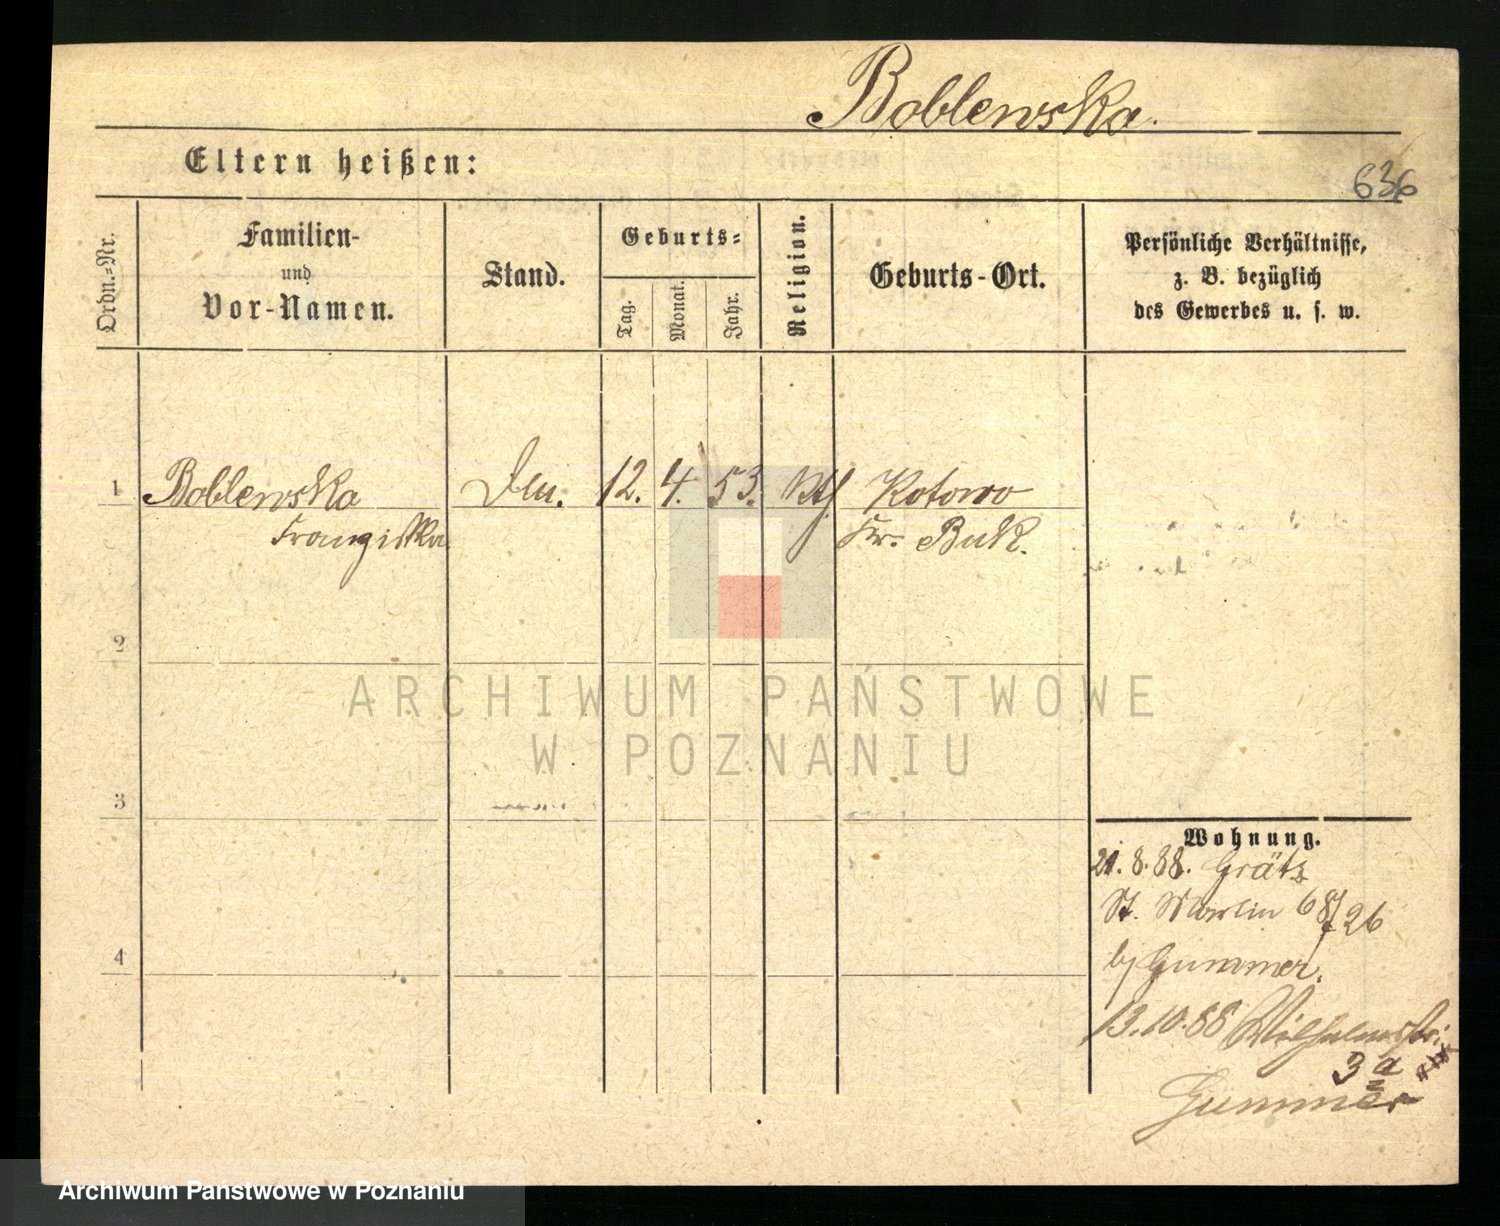 Boblewska.
Eltern heißen:
636
Ordn.-Nr.
Familien-
und
Vor-Namen.
Stand.
Geburts-
Tag.
Monat.
Jahr.
Religion.
Geburts-Ort.
Persönliche Verhältnisse,
z. B. bezüglich
des Gewerbes u. s. w.
1 Boblewska 12. 4. 53. Kth Kotowo
Franziska Kr. Buk.
2
3
4
Wohnung.
21. 8. 88. Grätz
St. Martin 26
bj Gummer.
13.10.88 Wilhelmstr.
3 a
Gummer
ARCHIWUM PAŃSTWOWE
W POZNANIU
Archiwum Państwowe w Poznaniu